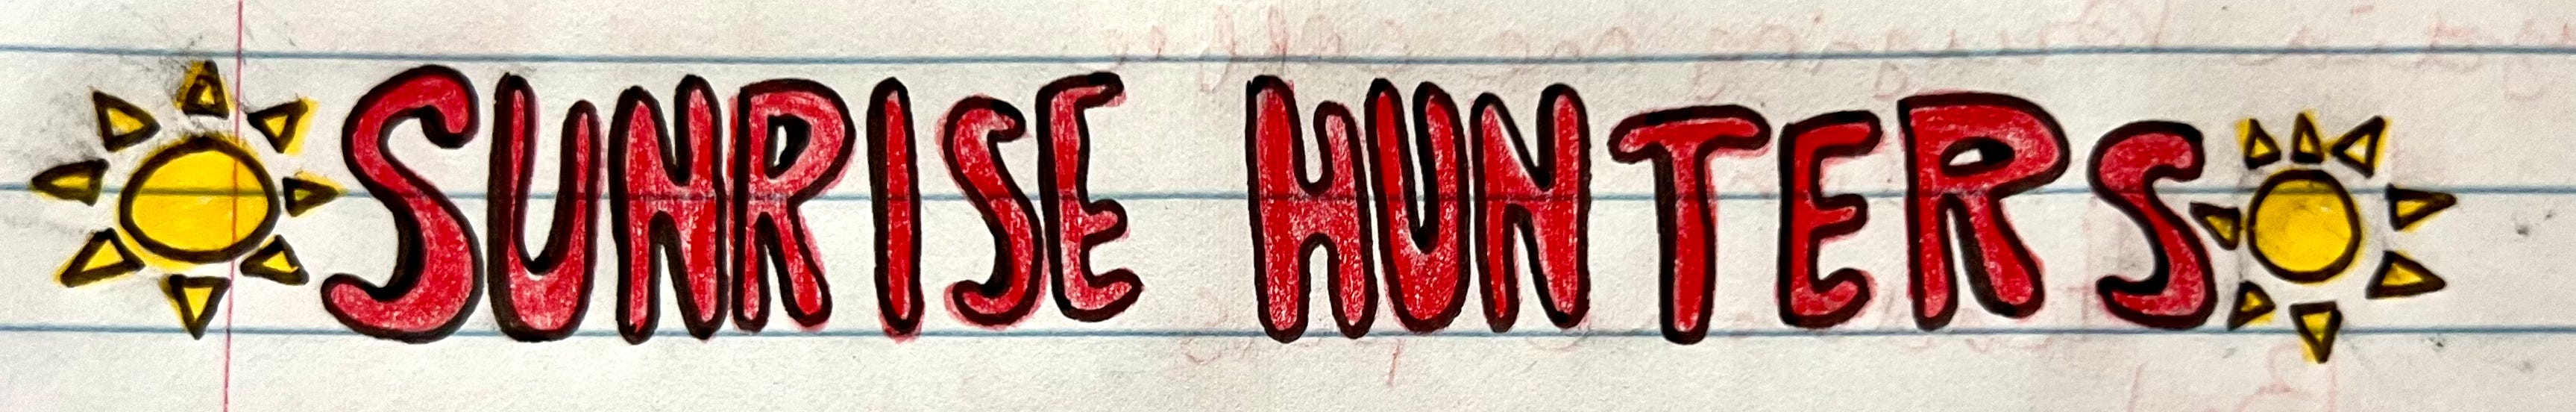 SUNRISE HUNTERS